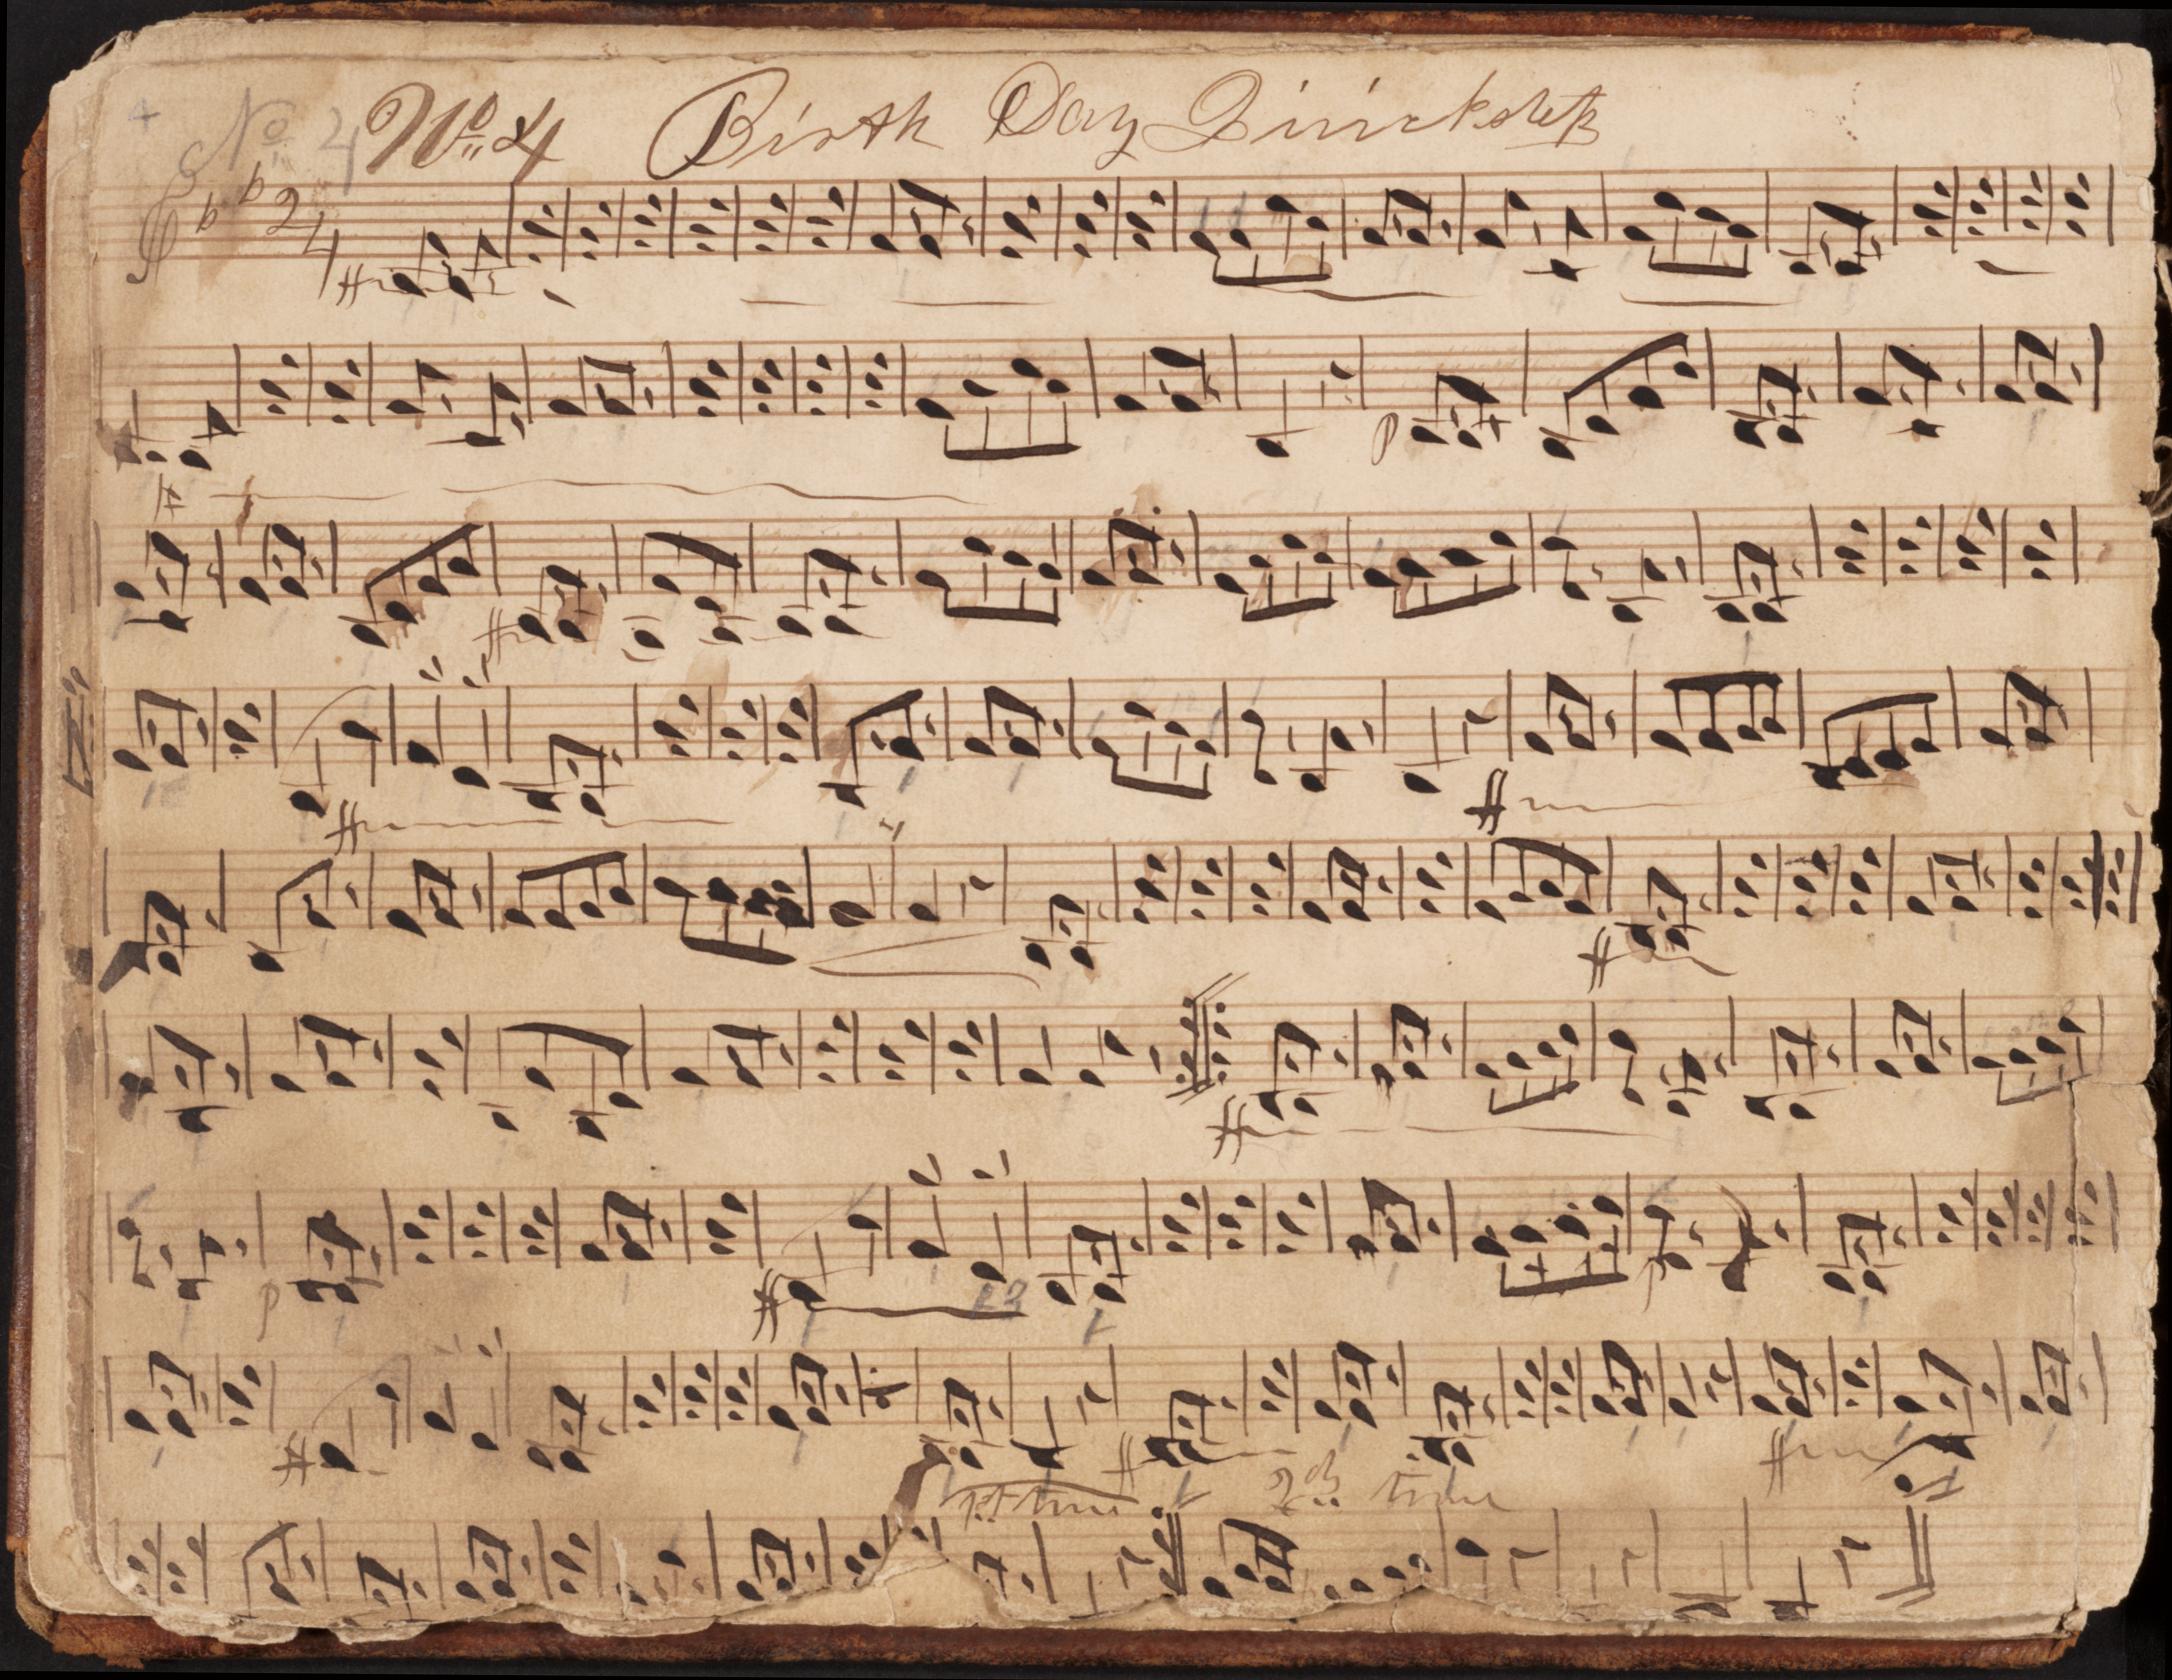 4 No. 4 No. 4 Birth Day Quickstep
2/4
p
p
1st time 2d time